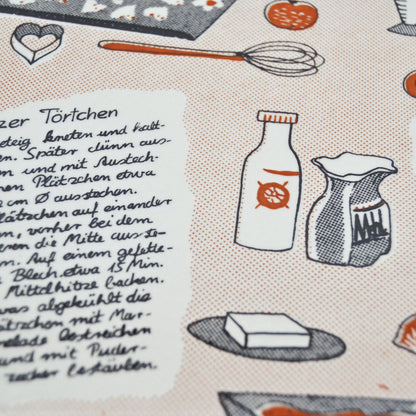 zer Törtchen
eteig kneten und kalt-
en. Später dünn aus-
en und mit Austech-
en Plätzchen etwa
cm Ø ausstechen.
lätzchen auf einander
n, vorher bei dem
eren die Mitte aus ste-
. Auf einem gefette-
Blech etwa 15 Min.
Mittelhitze backen.
was abgekühlt die
ätzchen mit Mar-
elade bestreichen
und mit Puder-
zucker bestäuben.